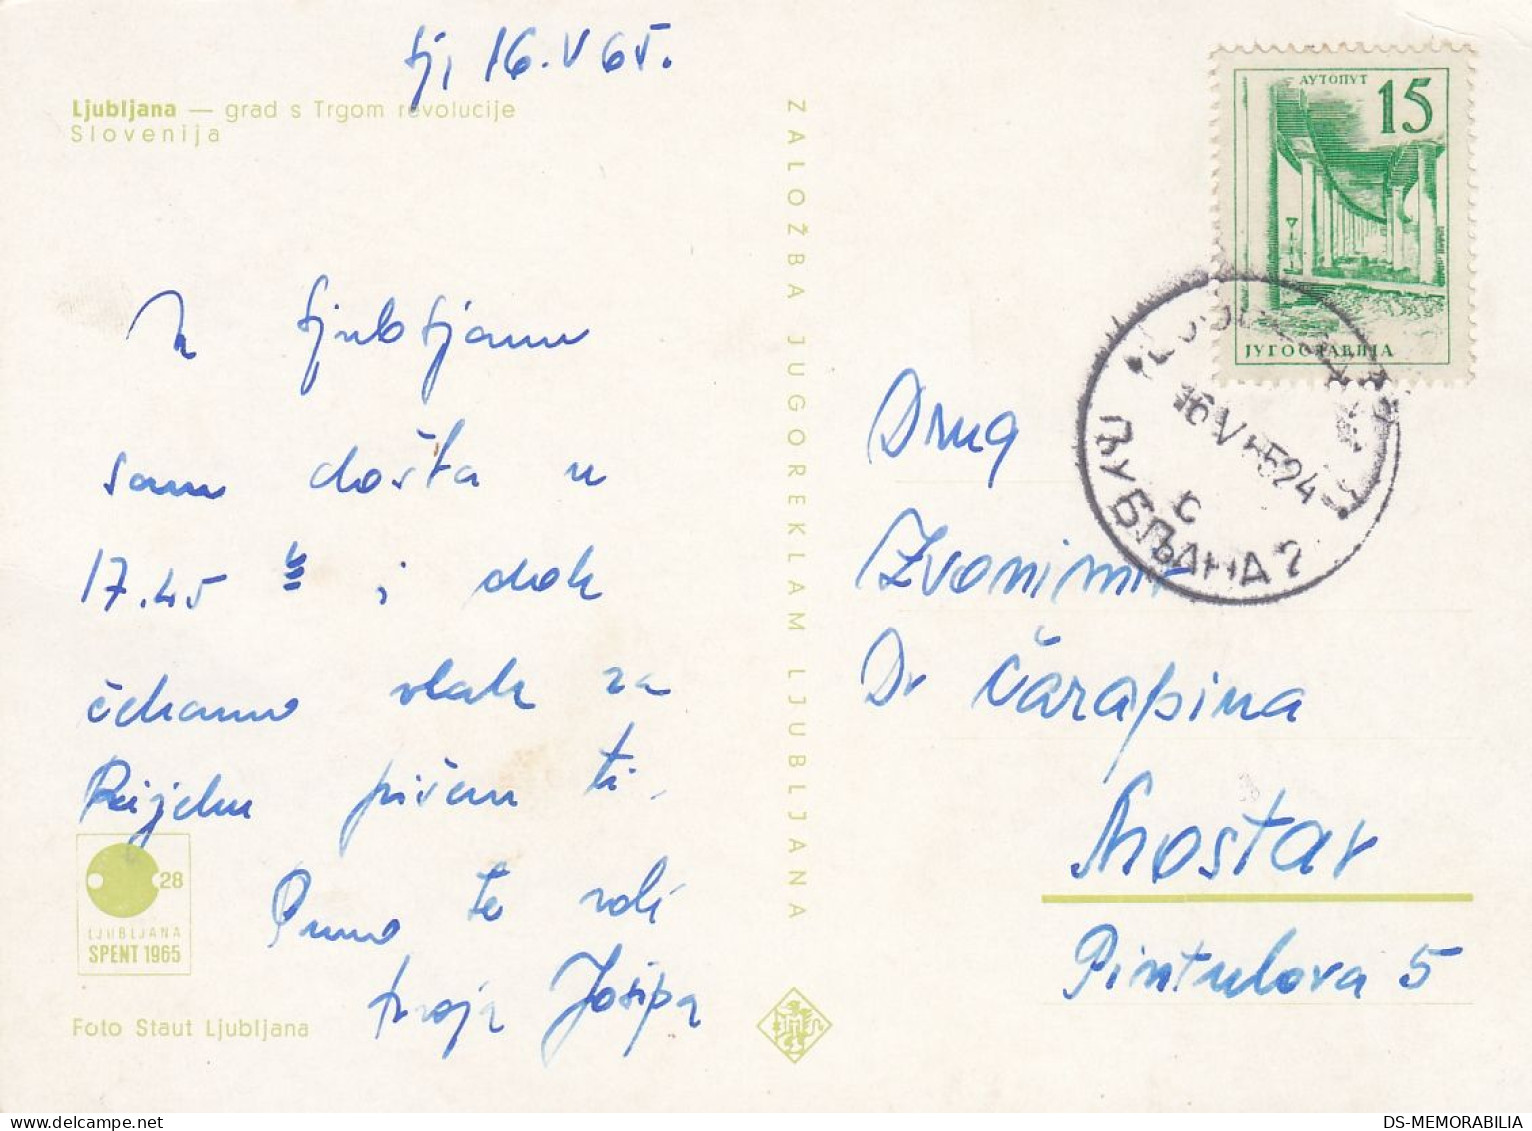 Lj, 16. V 65.
Ljubljana — grad s Trgom revolucije
Slovenija
U Ljubljanu
sam došla u
17.45 h i dok
čekamo vlak za
Rijeku pišem ti.
Puno te voli
tvoja Josipa
28
LJUBLJANA
SPENT 1965
Foto Staut Ljubljana
ZALOŽBA JUGOREKLAM LJUBLJANA
АУТОПУТ 15
ЈУГОСЛАВИЈА
16 V 65 24
c
ЉУБЉАНА 2
Drug
Zvonimir
Dr Čarapina
Mostar
Pintulova 5
DS-MEMORABILIA